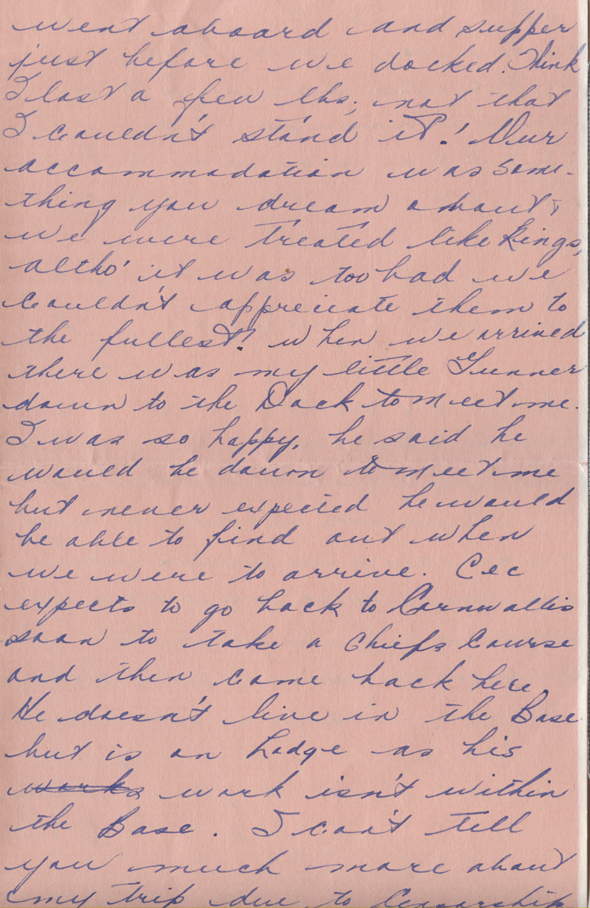 went aboard and supper
just before we docked. Think
I lost a few lbs, not that
I couldn't stand it! Our
accommodation was some-
thing you dream about &
we were treated like Kings,
altho' it was too bad we
couldn't appreciate them to
the fullest! When we arrived
there was my little Gunner
down to the Dock to meet me.
I was so happy, he said he
would be down to meet me
but never expected he would
be able to find out when
we were to arrive. Cec
expects to go back to Cornwallis
soon to take a Chiefs Course
and then come back here
He doesn't live in the Base
but is on Lodge as his
works work isn't within
the Base. I can't tell
you much more about
my trip due to Censorship